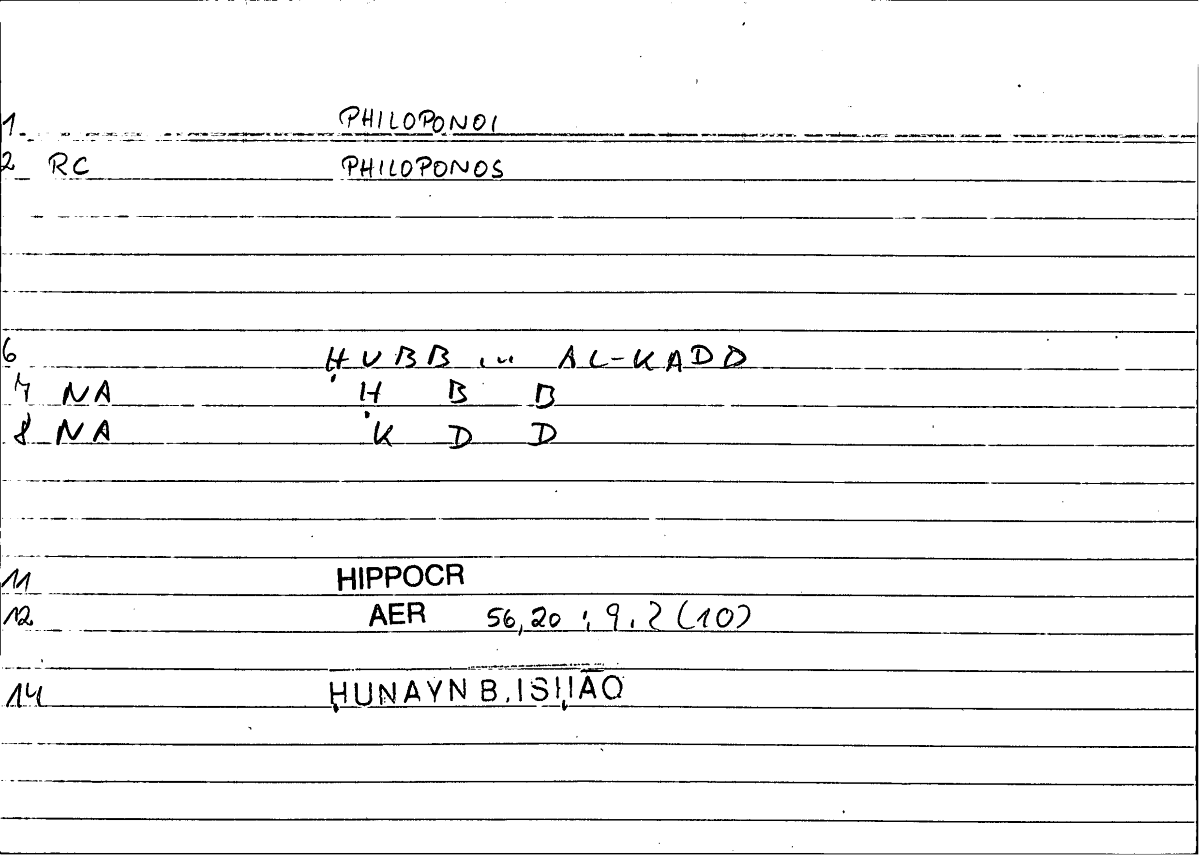 1 PHILOPONOI
2 RC PHILOPONOS
6 ḤUBB ... AL-KADD
7 NA Ḥ B B
8 NA K D D
11 HIPPOCR
12 AER 56,20 ; 9.2 (10)
14 ḤUNAYN B. ISḤĀQ